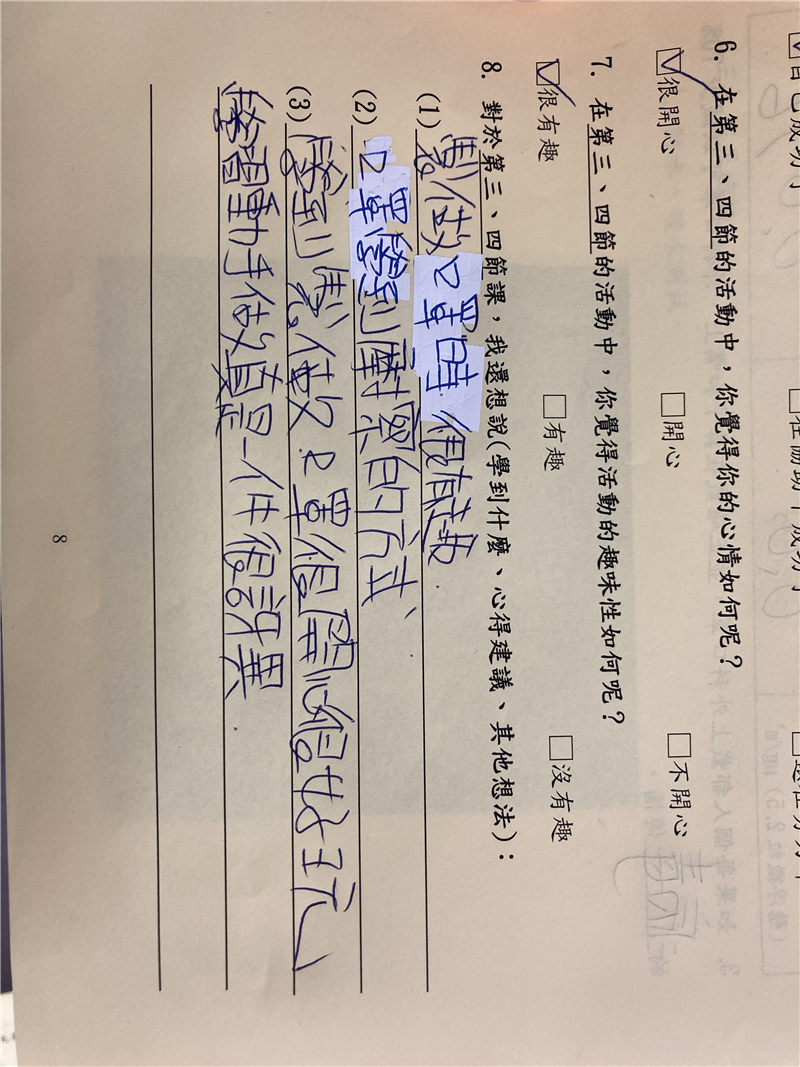 6. 在第三、四節的活動中，你覺得你的心情如何呢？
☑很開心 □開心 □不開心
7. 在第三、四節的活動中，你覺得活動的趣味性如何呢？
☑很有趣 □有趣 □沒有趣
8. 對於第三、四節課，我還想說(學到什麼、心得建議、其他想法)：
(1) 製做口罩時很有趣
(2) 口罩學到 的方式
(3) 學到製做口罩很開心很好玩
學習動手做真是一件很 異
8